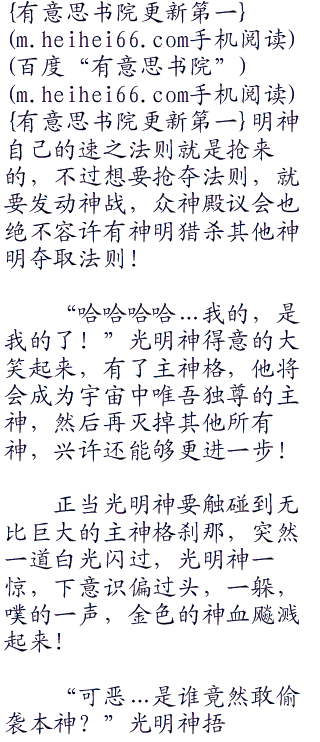 {有意思书院更新第一}
(m.heihei66.com手机阅读)
(百度“有意思书院”)
(m.heihei66.com手机阅读)
{有意思书院更新第一}明神
自己的速之法则就是抢来
的，不过想要抢夺法则，就
要发动神战，众神殿议会也
绝不容许有神明猎杀其他神
明夺取法则！
“哈哈哈哈…我的，是
我的了！”光明神得意的大
笑起来，有了主神格，他将
会成为宇宙中唯吾独尊的主
神，然后再灭掉其他所有
神，兴许还能够更进一步！
正当光明神要触碰到无
比巨大的主神格刹那，突然
一道白光闪过，光明神一
惊，下意识偏过头，一躲，
噗的一声，金色的神血飚溅
起来！
“可恶…是谁竟然敢偷
袭本神？”光明神捂